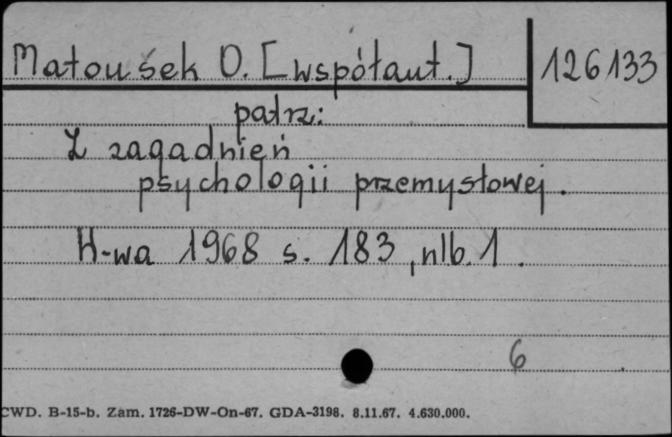 Matoušek O. [współaut.]
126133
patrz:
Z zagadnień
psychologii przemysłowej.
W-wa 1968 s. 183, nlb. 1.
6
CWD. B-15-b. Zam. 1726-DW-On-67. GDA-3198. 8.11.67. 4.630.000.